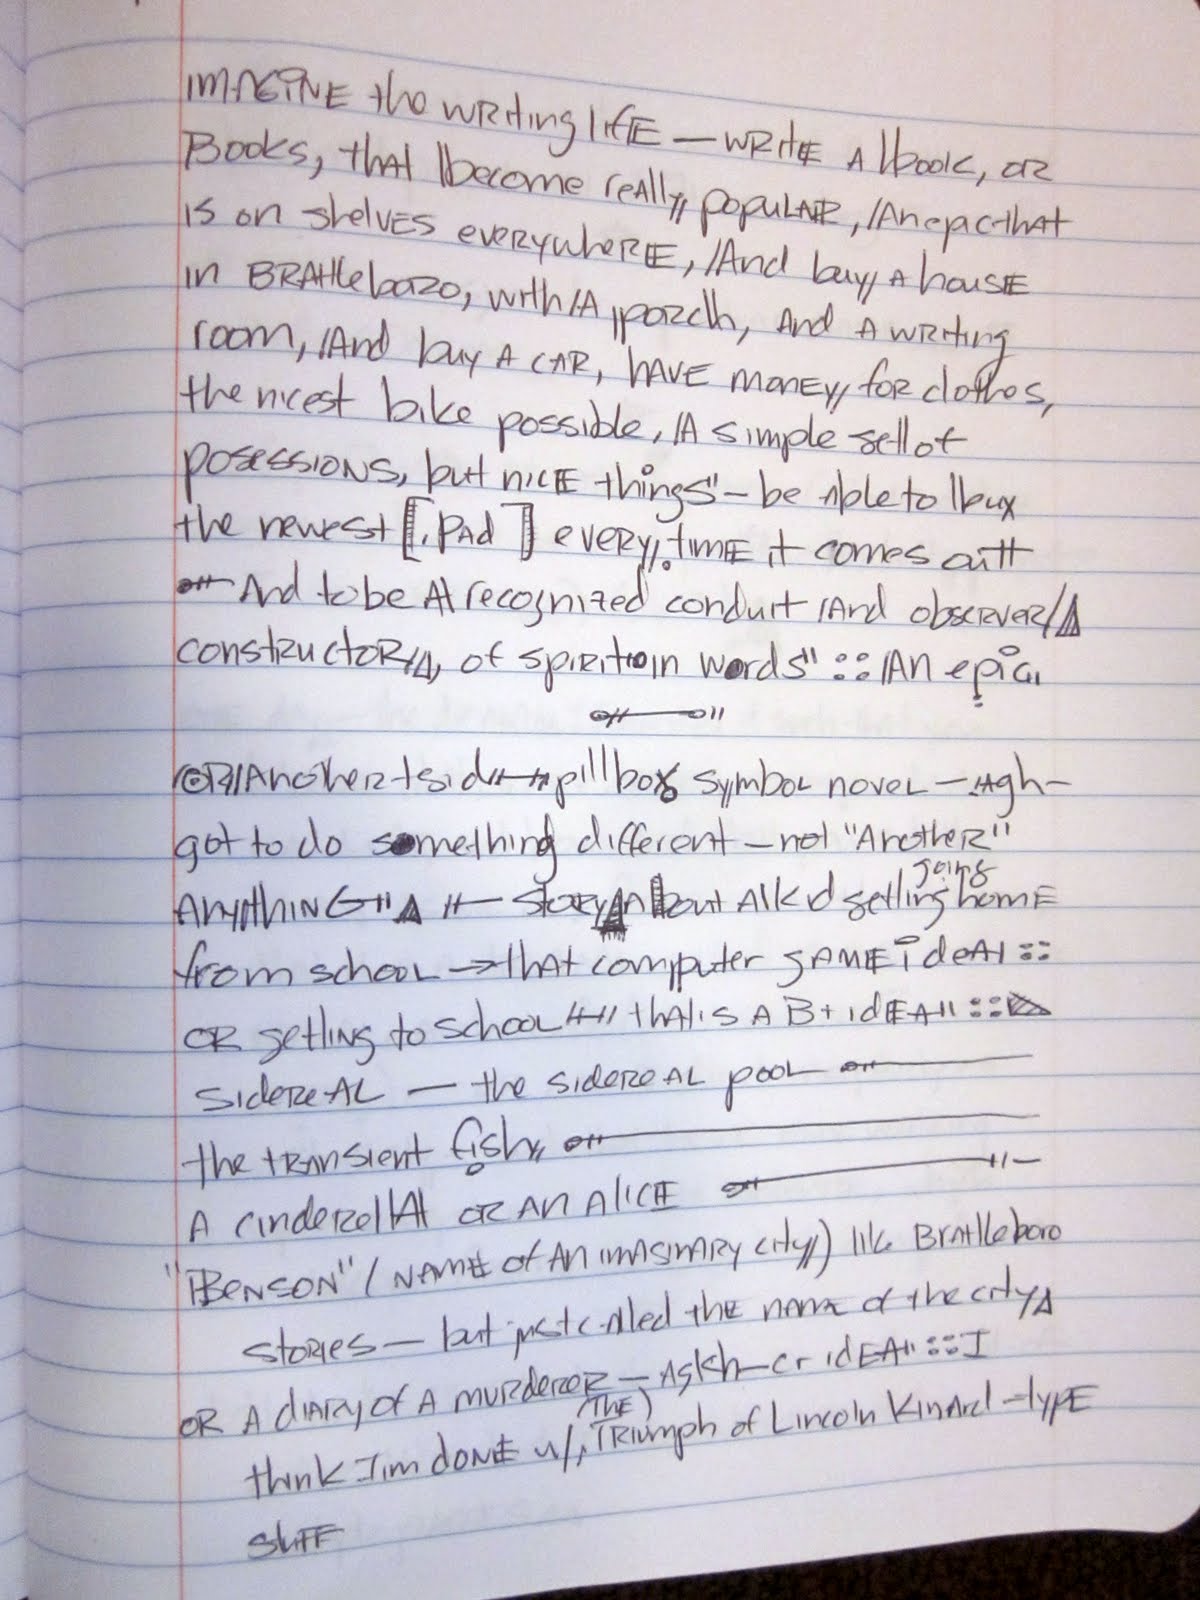 IMAGINE the writing life — write A book, or
Books, that become really popular, An epic that
is on shelves everywhere, And buy A house
in BRAttleboro, with A porch, and A writing
room, And buy A CAR, have money for clothes,
the nicest bike possible, A simple set of
posessions, but nice things" – be Able to buy
the newest [iPad] every time it comes out
— And to be A recognized conduit And observer/
constructor, of spirit in words" :: An epic,
OR/Another side pillbox symbol novel — Agh —
got to do something different — not "Another"
Anything" — story About A kid getting going home
from school → that computer game idea ::
OR getting to school that is A B+ idea ::
sidereal — the sidereal pool
the transient fish,
A cinderella OR AN Alice
"Benson" (name of An imaginary city) like Brattleboro
stories — but just called the name of the city
OR A diary of A murderer — Agkh — cr idea :: I
think I'm done w/ (The) Triumph of Lincoln Kinard – type
stuff